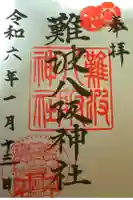 奉拝
難波八阪神社
令和六年一月十三日
難波
八阪
神社